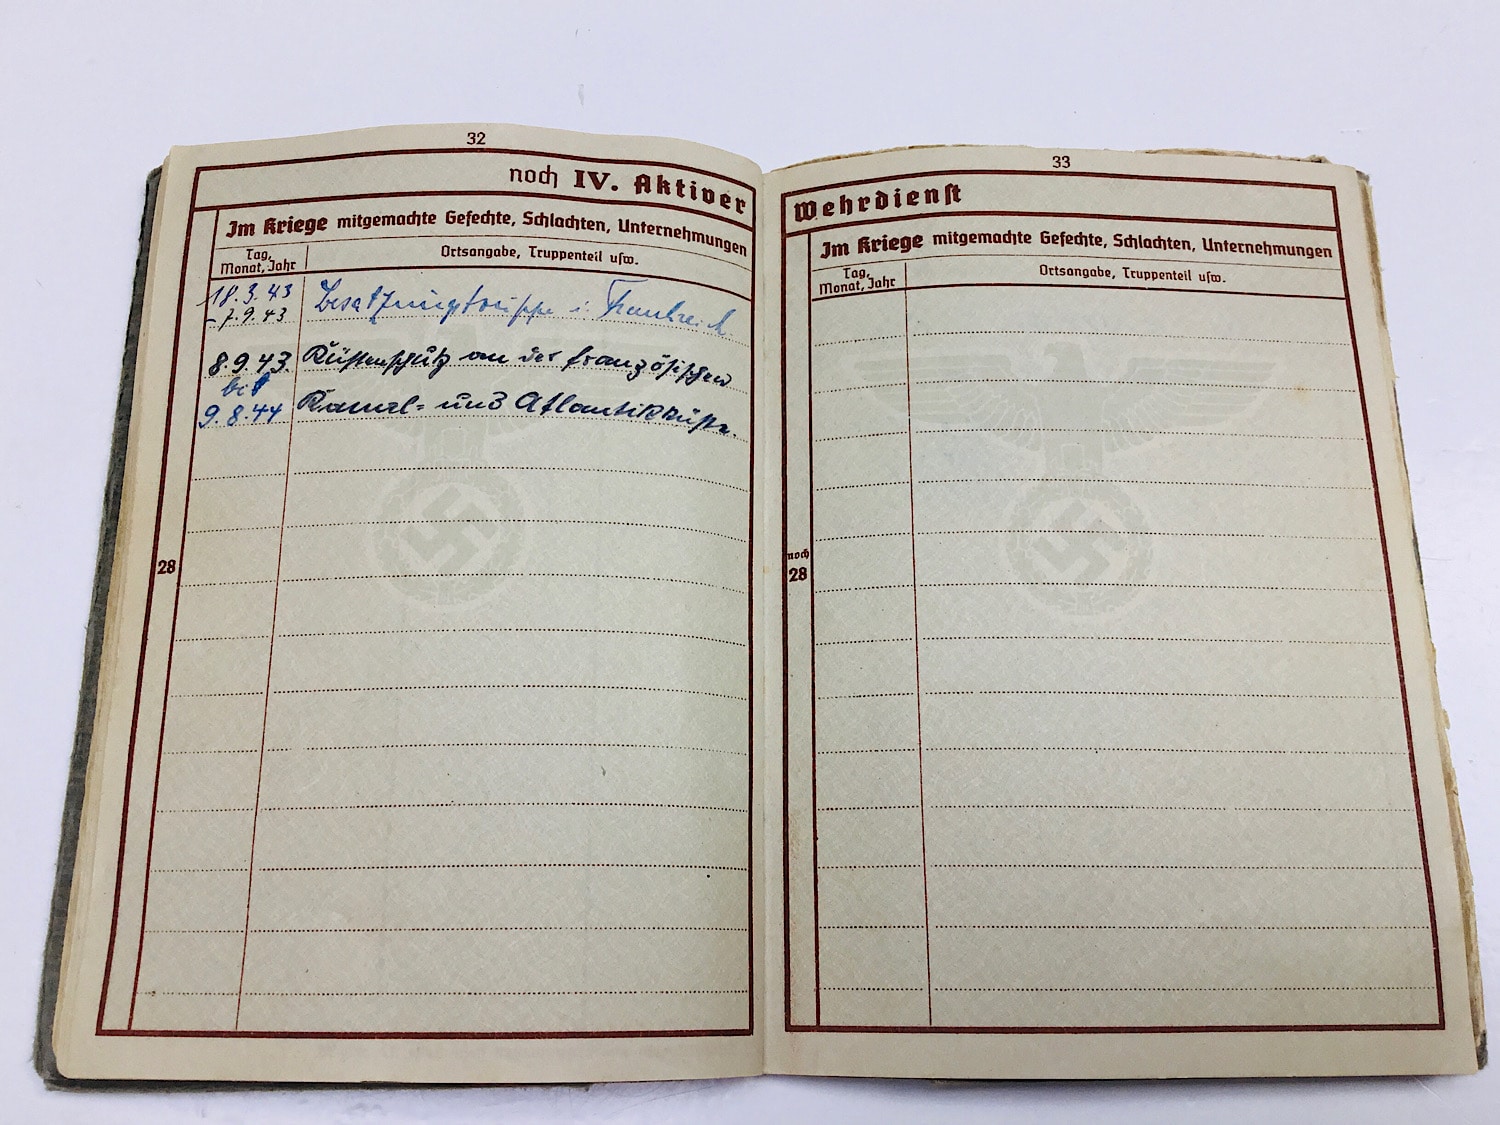 32
noch IV. Aktiver
Im Kriege mitgemachte Gefechte, Schlachten, Unternehmungen
Tag, Monat, Jahr
Ortsangabe, Truppenteil usw.
18.3.43 Besatzungstruppe i. Frankreich.
-7.9.43
8.9.43. Küstenschutz an der französischen
bis
9.8.44 Kanal- und Atlantikküste.
28
33
Wehrdienst
Im Kriege mitgemachte Gefechte, Schlachten, Unternehmungen
Tag, Monat, Jahr
Ortsangabe, Truppenteil usw.
noch
28